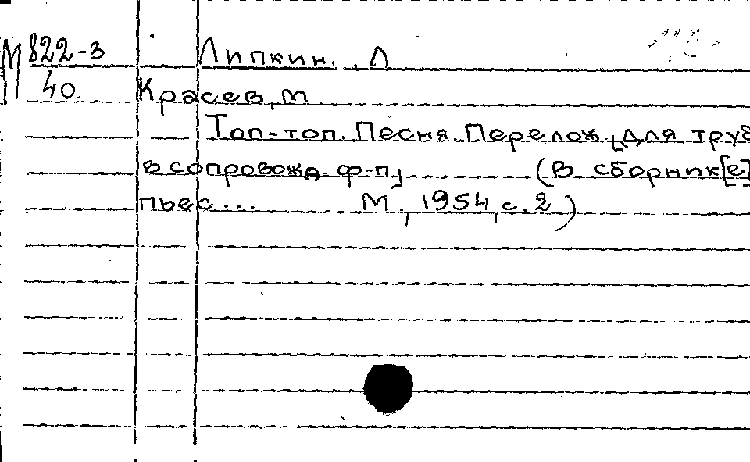 М 822-3 Липкин. Л
40 Красев, М.
Топ-топ. Песня. Перелож. [для труб
в сопровожд. ф-п] (В сборник[е]
пьес... М., 1954, с. 2)